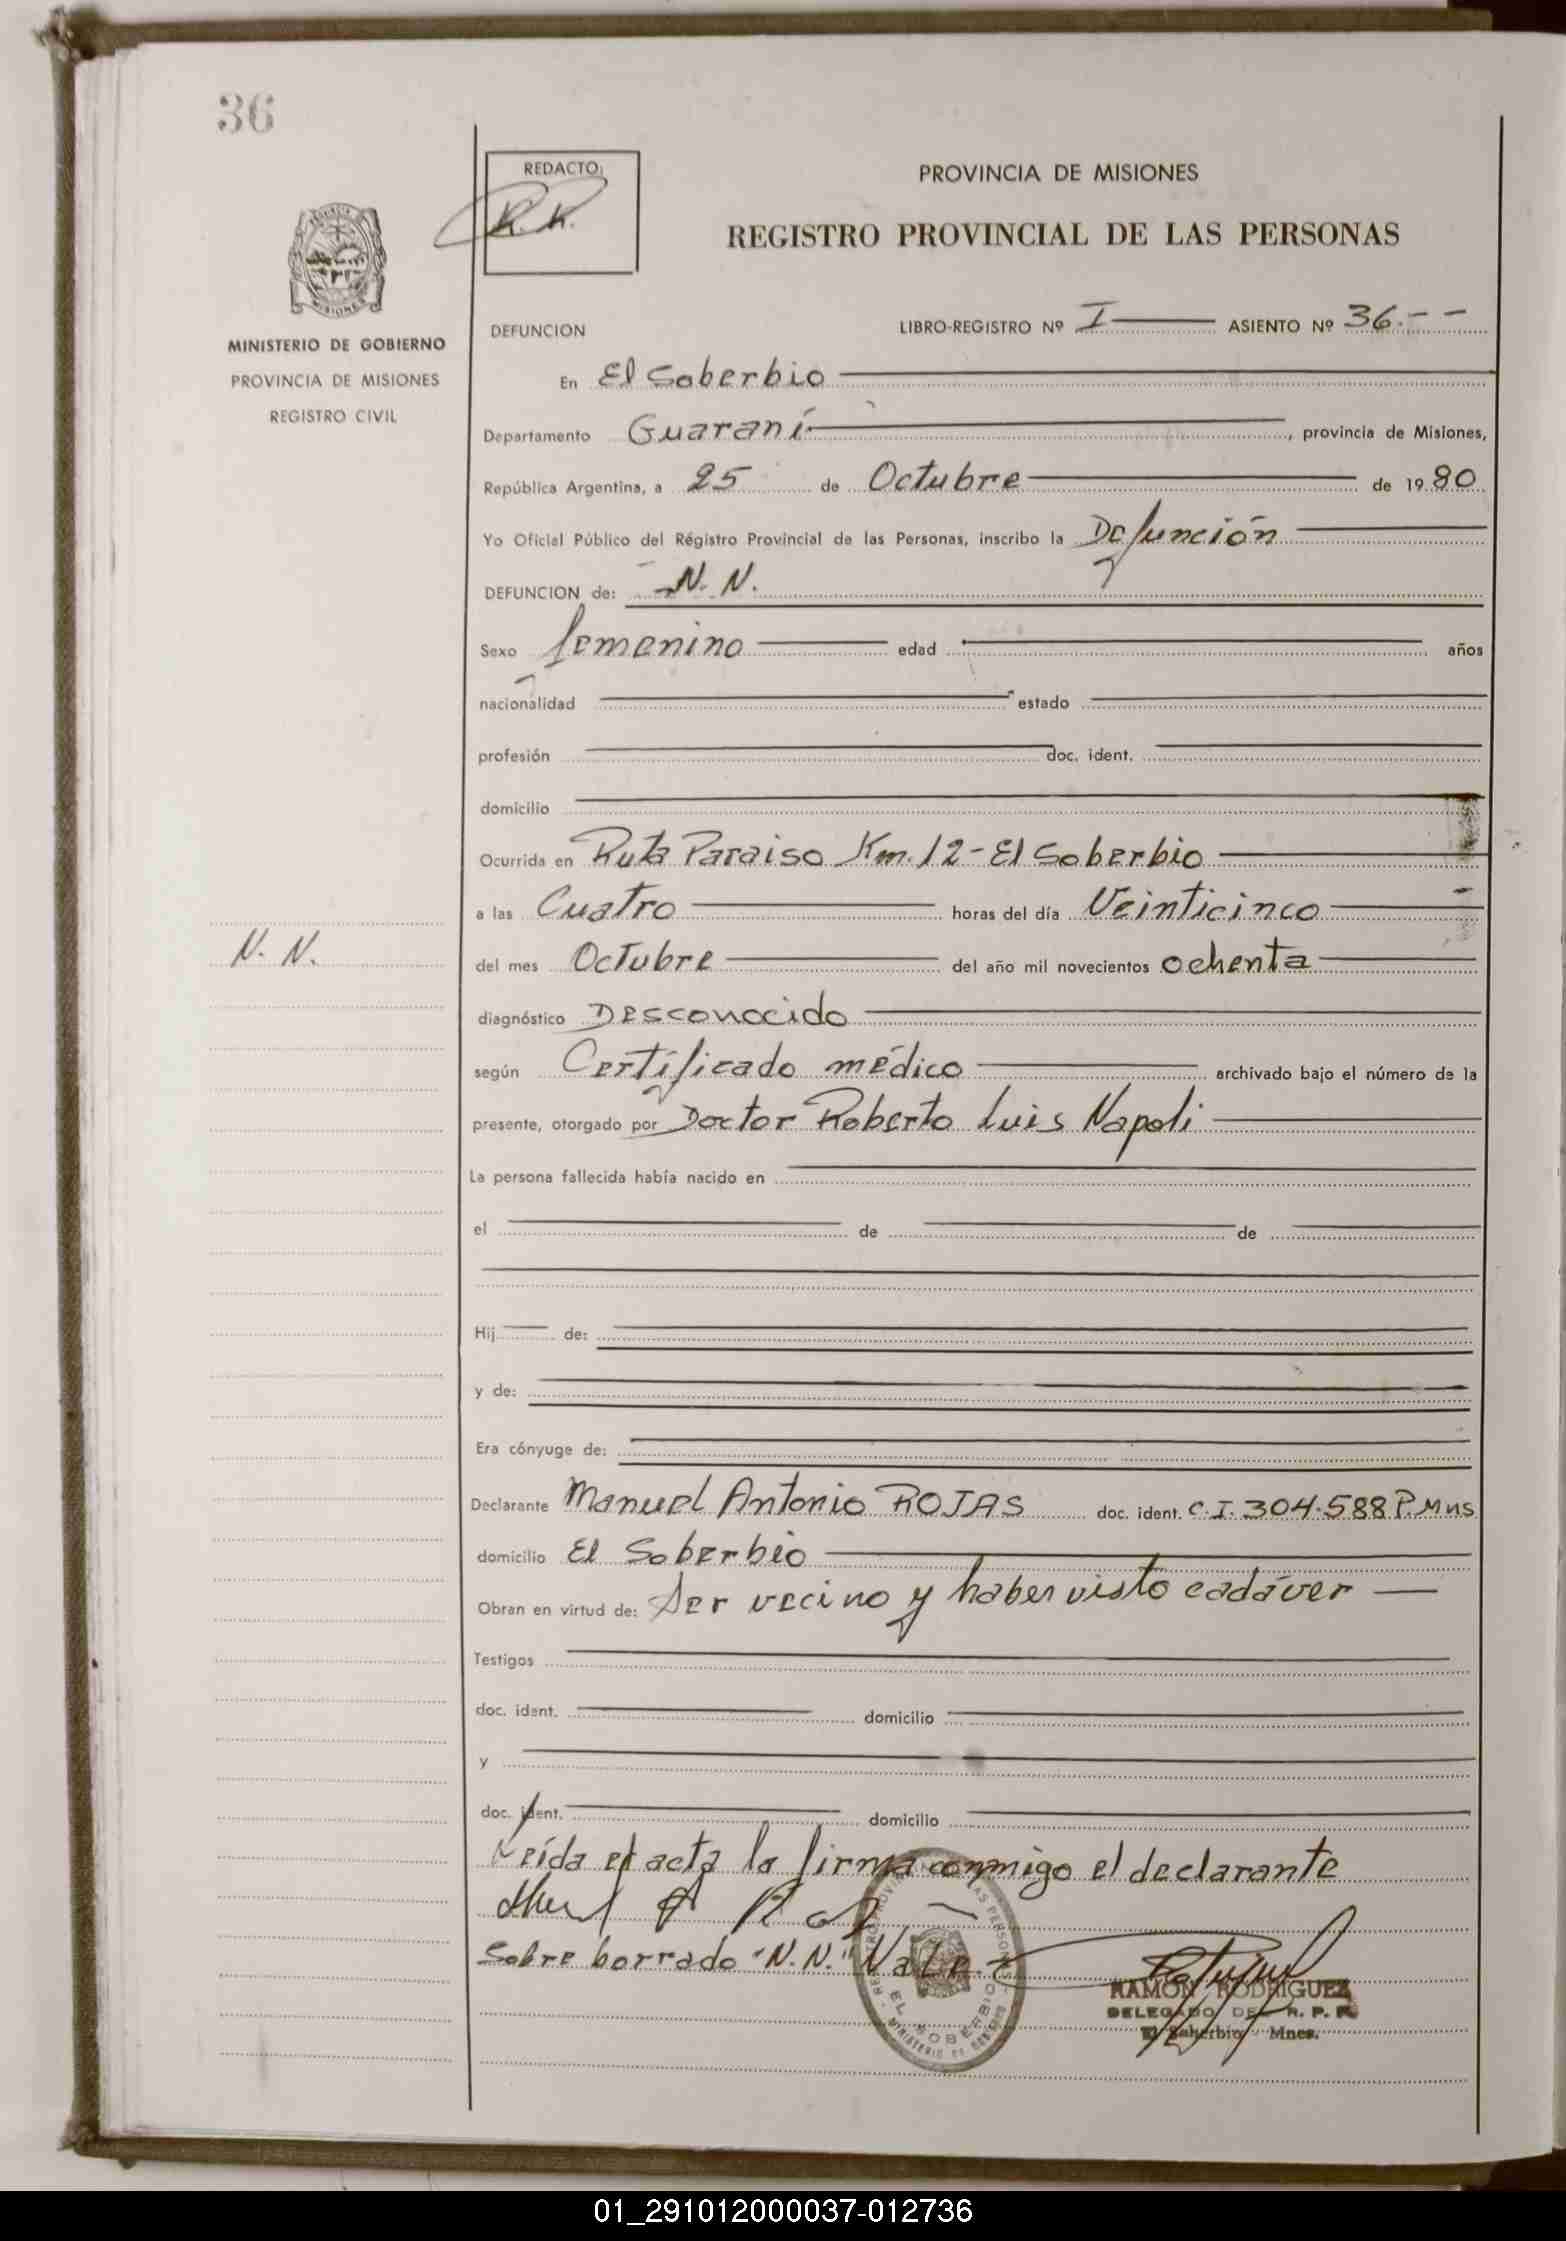 36
REDACTO:
R.R.
PROVINCIA DE MISIONES
REGISTRO PROVINCIAL DE LAS PERSONAS
MISIONES
MINISTERIO DE GOBIERNO
PROVINCIA DE MISIONES
REGISTRO CIVIL
DEFUNCION LIBRO-REGISTRO Nº I ASIENTO Nº 36.--
En El Soberbio
Departamento Guaraní, provincia de Misiones,
República Argentina, a 25 de Octubre de 1980
Yo Oficial Público del Régistro Provincial de las Personas, inscribo la Defunción
DEFUNCION de: N. N.
Sexo femenino edad años
nacionalidad estado
profesión doc. ident.
domicilio
Ocurrida en Ruta Paraiso Km. 12 - El Soberbio
a las Cuatro horas del día Veinticinco
N. N.
del mes Octubre del año mil novecientos ochenta
diagnóstico Desconocido
según Certificado médico archivado bajo el número de la
presente, otorgado por Doctor Roberto Luis Napoli
La persona fallecida había nacido en
el de de
Hij de:
y de:
Era cónyuge de:
Declarante Manuel Antonio ROJAS doc. ident. C.I. 304.588 P.Mns
domicilio El Soberbio
Obran en virtud de: Ser vecino y haber visto cadáver
Testigos
doc. ident. domicilio
y
doc. ident. domicilio
Leída el acta la firma conmigo el declarante
Sobre borrado "N.N." Vale.-
RAMON RODRIGUEZ
DELEGADO DEL R. P. P.
El Soberbio - Mnes.
EL SOBERBIO
MINISTERIO DE GOBIERNO
01_291012000037-012736